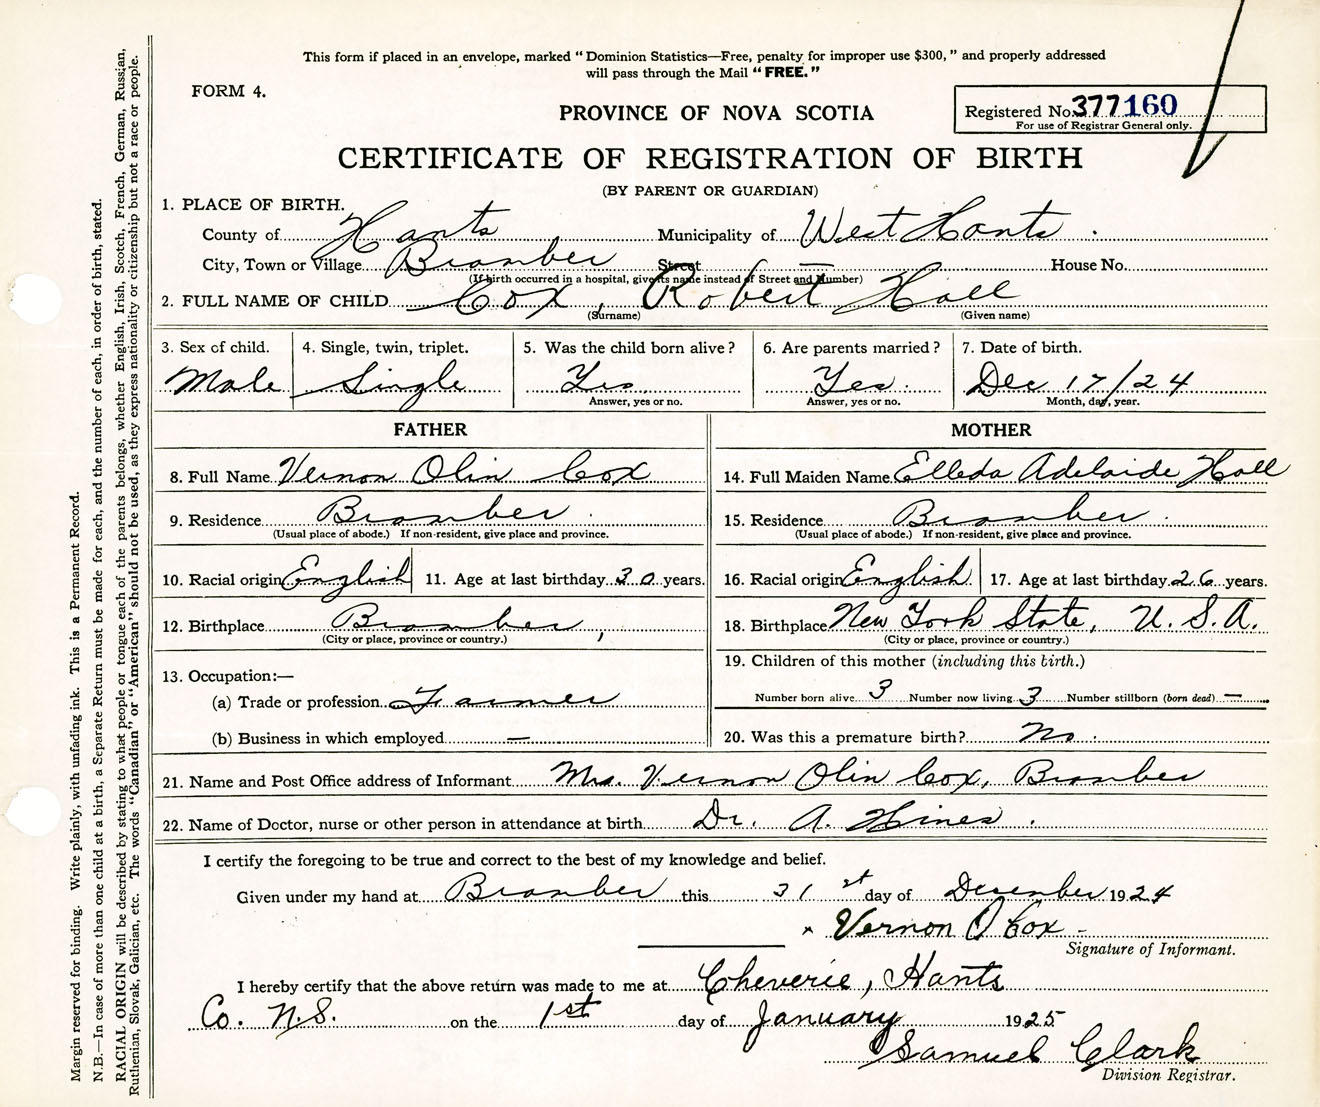 This form if placed in an envelope, marked "Dominion Statistics—Free, penalty for improper use $300," and properly addressed
will pass through the Mail "FREE."
FORM 4.
PROVINCE OF NOVA SCOTIA
Registered No. 377160
For use of Registrar General only.
CERTIFICATE OF REGISTRATION OF BIRTH
(BY PARENT OR GUARDIAN)
1. PLACE OF BIRTH.
County of Hants Municipality of West Hants.
City, Town or Village Bramber Street House No.
(If birth occurred in a hospital, give its name instead of Street and Number)
2. FULL NAME OF CHILD Cox, Robert Hall
(Surname) (Given name)
3. Sex of child. 4. Single, twin, triplet. 5. Was the child born alive? 6. Are parents married? 7. Date of birth.
Male Single Yes Yes. Dec 17/24
Answer, yes or no. Answer, yes or no. Month, day, year.
FATHER MOTHER
8. Full Name Vernon Olin Cox 14. Full Maiden Name Elleda Adelaide Hall
9. Residence Bramber. 15. Residence Bramber.
(Usual place of abode.) If non-resident, give place and province. (Usual place of abode.) If non-resident, give place and province.
10. Racial origin English 11. Age at last birthday 30 years. 16. Racial origin English. 17. Age at last birthday 26 years.
12. Birthplace Bramber, 18. Birthplace New York State, U.S.A.
(City or place, province or country.) (City or place, province or country.)
13. Occupation:— 19. Children of this mother (including this birth.)
(a) Trade or profession Farmer Number born alive 3 Number now living 3 Number stillborn (born dead) —
(b) Business in which employed — 20. Was this a premature birth? No.
21. Name and Post Office address of Informant Mrs. Vernon Olin Cox, Bramber
22. Name of Doctor, nurse or other person in attendance at birth Dr. A. Hines.
I certify the foregoing to be true and correct to the best of my knowledge and belief.
Given under my hand at Bramber this 31st day of December 1924
x Vernon O Cox -
Signature of Informant.
I hereby certify that the above return was made to me at Cheverie, Hants
Co. N.S. on the 1st day of January 1925
Samuel Clark
Division Registrar.
Margin reserved for binding. Write plainly, with unfading ink. This is a Permanent Record.
N.B.—In case of more than one child at a birth, a Separate Return must be made for each, and the number of each, in order of birth, stated.
RACIAL ORIGIN will be described by stating to what people or tongue each of the parents belongs, whether English, Irish, Scotch, French, German, Russian,
Ruthenian, Slovak, Galician, etc. The words "Canadian" or "American" should not be used, as they express nationality or citizenship but not a race or people.